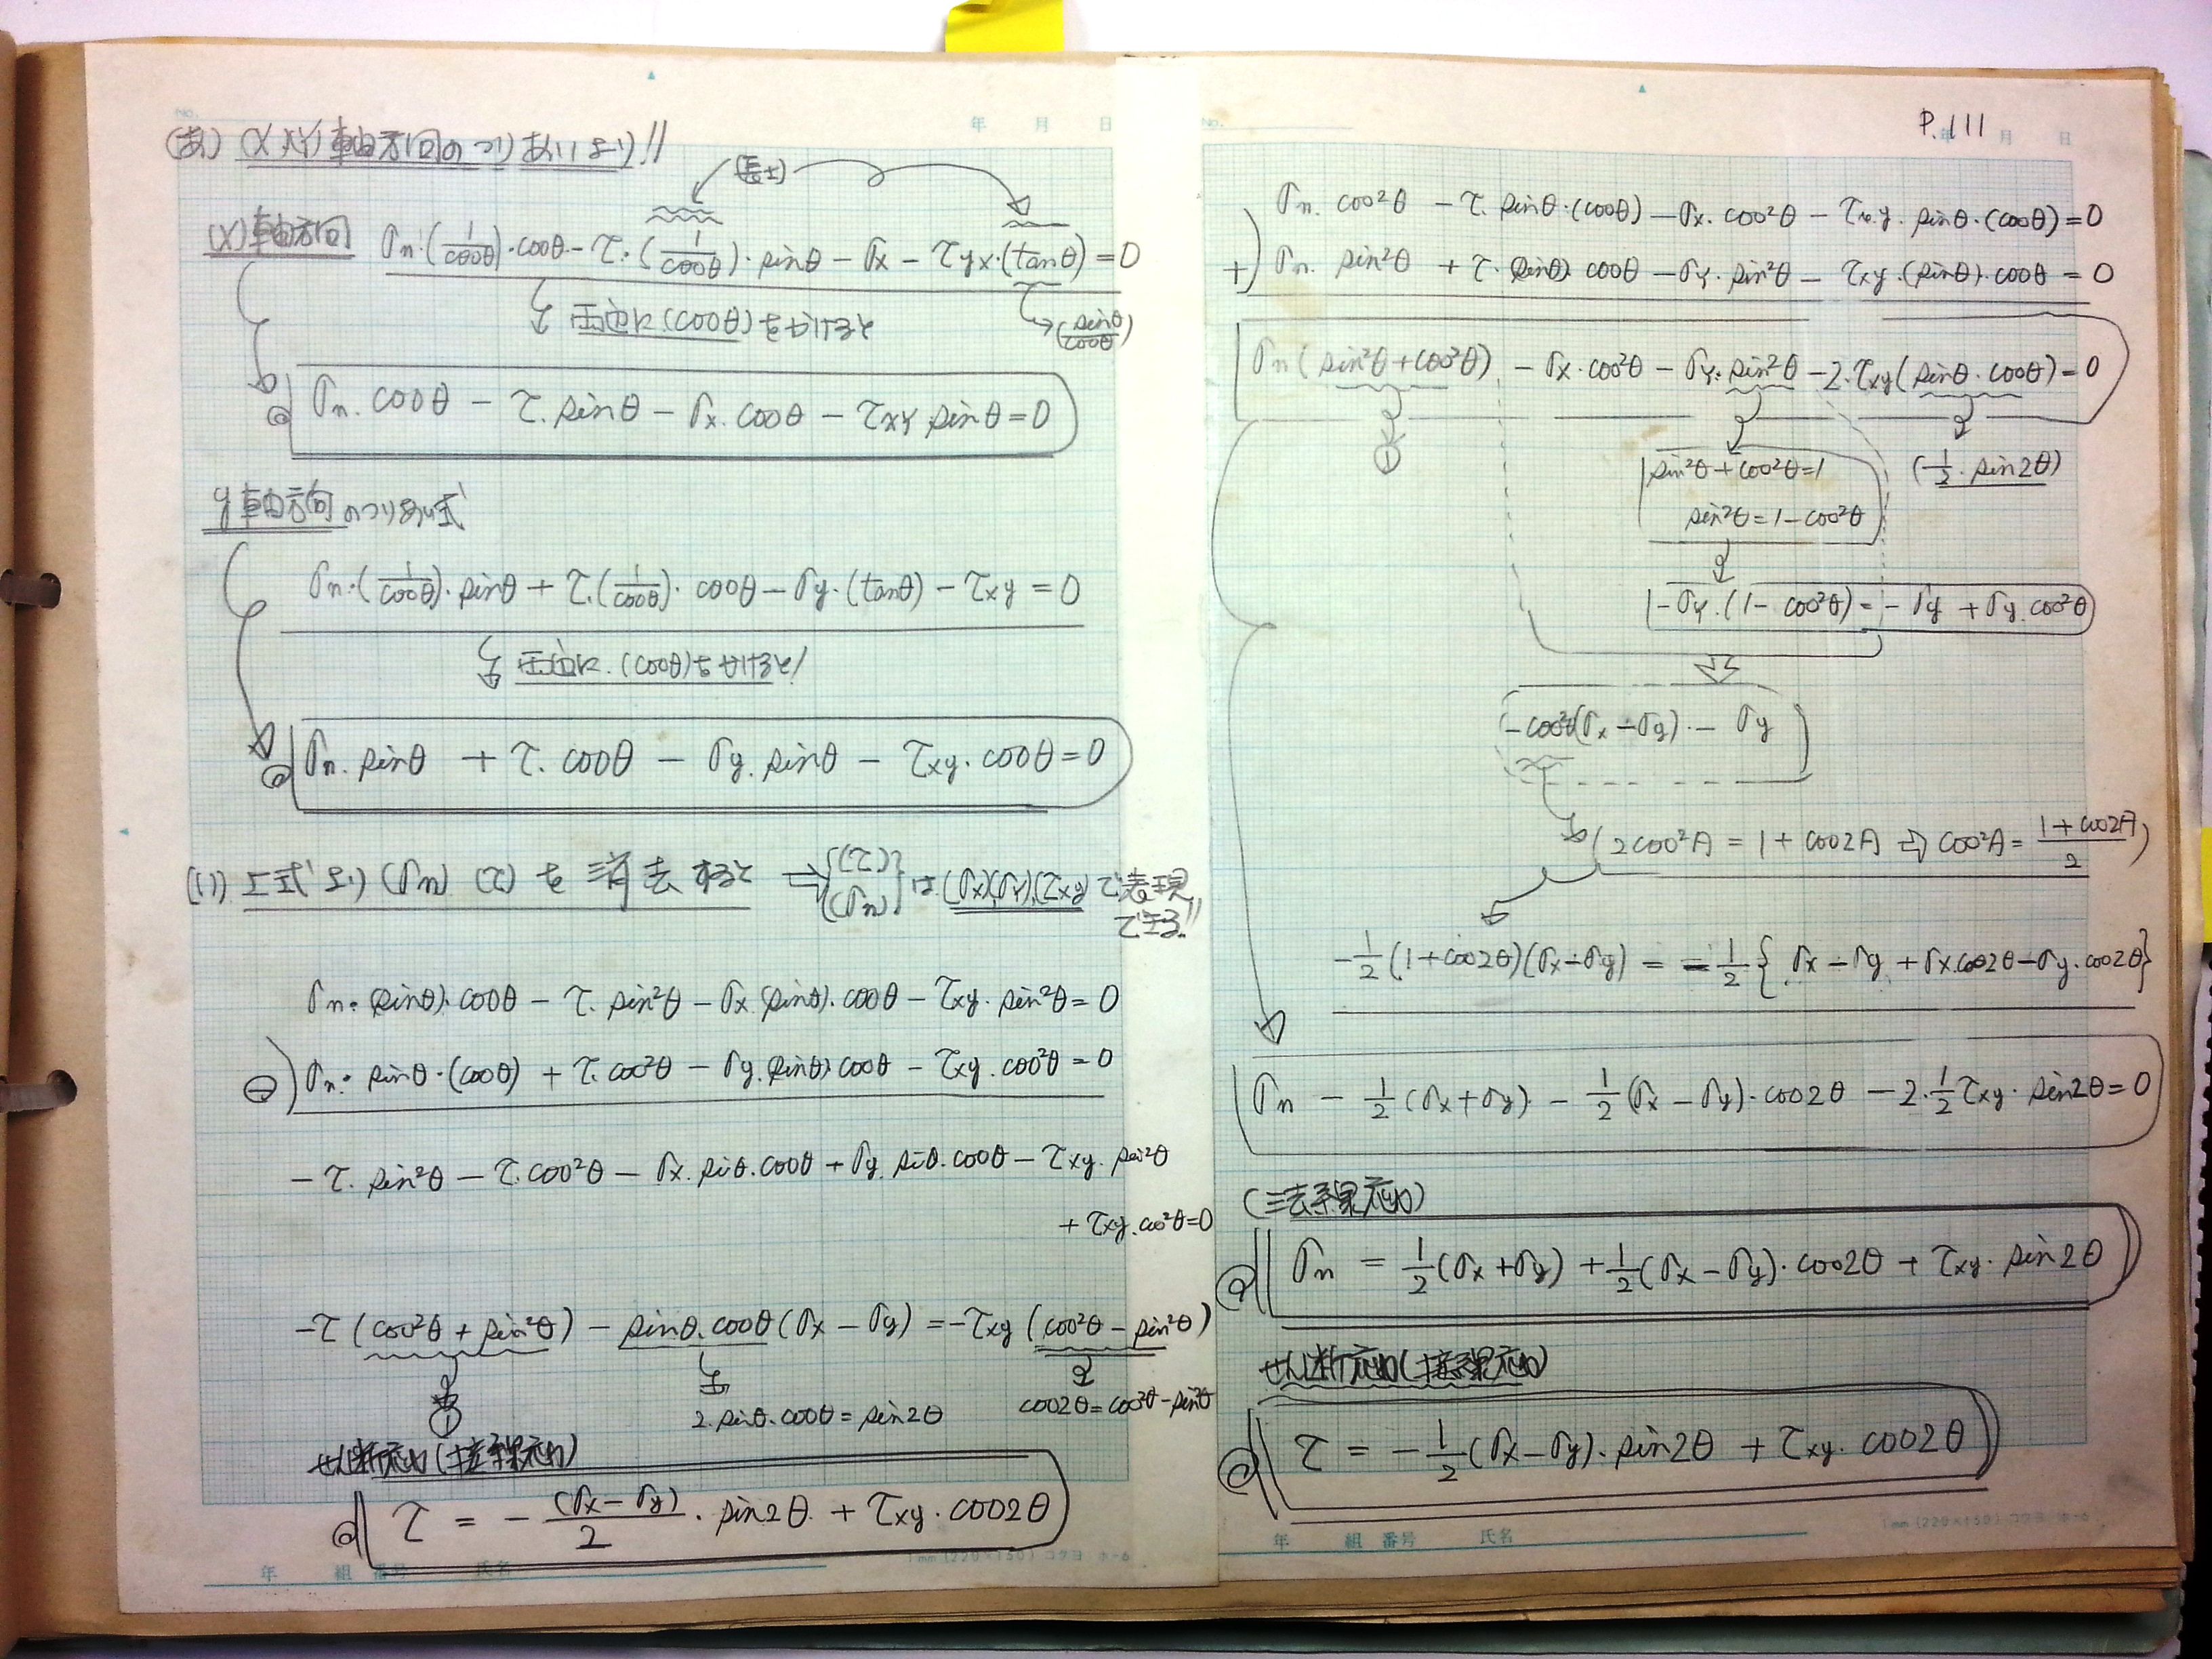 No. 年 月 日
(あ) (X)(Y)軸方向のつりあいより!!
(長さ)
(X)軸方向 σn·(1/cosθ)·cosθ − τ·(1/cosθ)·sinθ − σx − τyx·(tanθ) = 0
両辺に(cosθ)をかけると
(sinθ/cosθ)
σn·cosθ − τ·sinθ − σx·cosθ − τxy sinθ = 0
y軸方向のつりあい式
σn·(1/cosθ)·sinθ + τ·(1/cosθ)·cosθ − σy·(tanθ) − τxy = 0
両辺に·(cosθ)をかけると!
σn·sinθ + τ·cosθ − σy·sinθ − τxy·cosθ = 0
(い) 上式より(σn)(τ)を消去すると ⇒ {(τ) (σn)} は(σx)(σy)(τxy)で表現
できる!!
σn·(sinθ)·cosθ − τ·sin²θ − σx(sinθ)·cosθ − τxy·sin²θ = 0
⊖) σn·sinθ·(cosθ) + τ·cos²θ − σy·(sinθ)·cosθ − τxy·cos²θ = 0
−τ·sin²θ − τ·cos²θ − σx·sinθ·cosθ + σy·sinθ·cosθ − τxy·sin²θ
+ τxy·cos²θ = 0
−τ(cos²θ + sin²θ) − sinθ·cosθ(σx − σy) = −τxy(cos²θ − sin²θ)
①
2·sinθ·cosθ = sin2θ
cos2θ = cos²θ − sin²θ
せん断応力(接線応力)
τ = − (σx − σy)/2 · sin2θ + τxy·cos2θ
年 組 番号 氏名
1mm (220×150) コクヨ ホ-6
No. 年 月 日
P.111
σn·cos²θ − τ·sinθ·(cosθ) − σx·cos²θ − τxy·sinθ·(cosθ) = 0
+) σn·sin²θ + τ·(sinθ)·cosθ − σy·sin²θ − τxy·(sinθ)·cosθ = 0
σn(sin²θ + cos²θ) − σx·cos²θ − σy·sin²θ − 2·τxy(sinθ·cosθ) = 0
①
sin²θ + cos²θ = 1
(1/2·sin2θ)
sin²θ = 1 − cos²θ
−σy·(1 − cos²θ) = −σy + σy·cos²θ
−cos²θ(σx − σy)·− σy
(2cos²A = 1 + cos2A ⇒ cos²A = (1 + cos2A)/2)
−1/2(1 + cos2θ)(σx − σy) = −1/2{σx − σy + σx·cos2θ − σy·cos2θ}
σn − 1/2(σx + σy) − 1/2(σx − σy)·cos2θ − 2·1/2 τxy·sin2θ = 0
(法線応力)
σn = 1/2(σx + σy) + 1/2(σx − σy)·cos2θ + τxy·sin2θ
せん断応力(接線応力)
τ = −1/2(σx − σy)·sin2θ + τxy·cos2θ
年 組 番号 氏名
1mm (220×150) コクヨ ホ-6